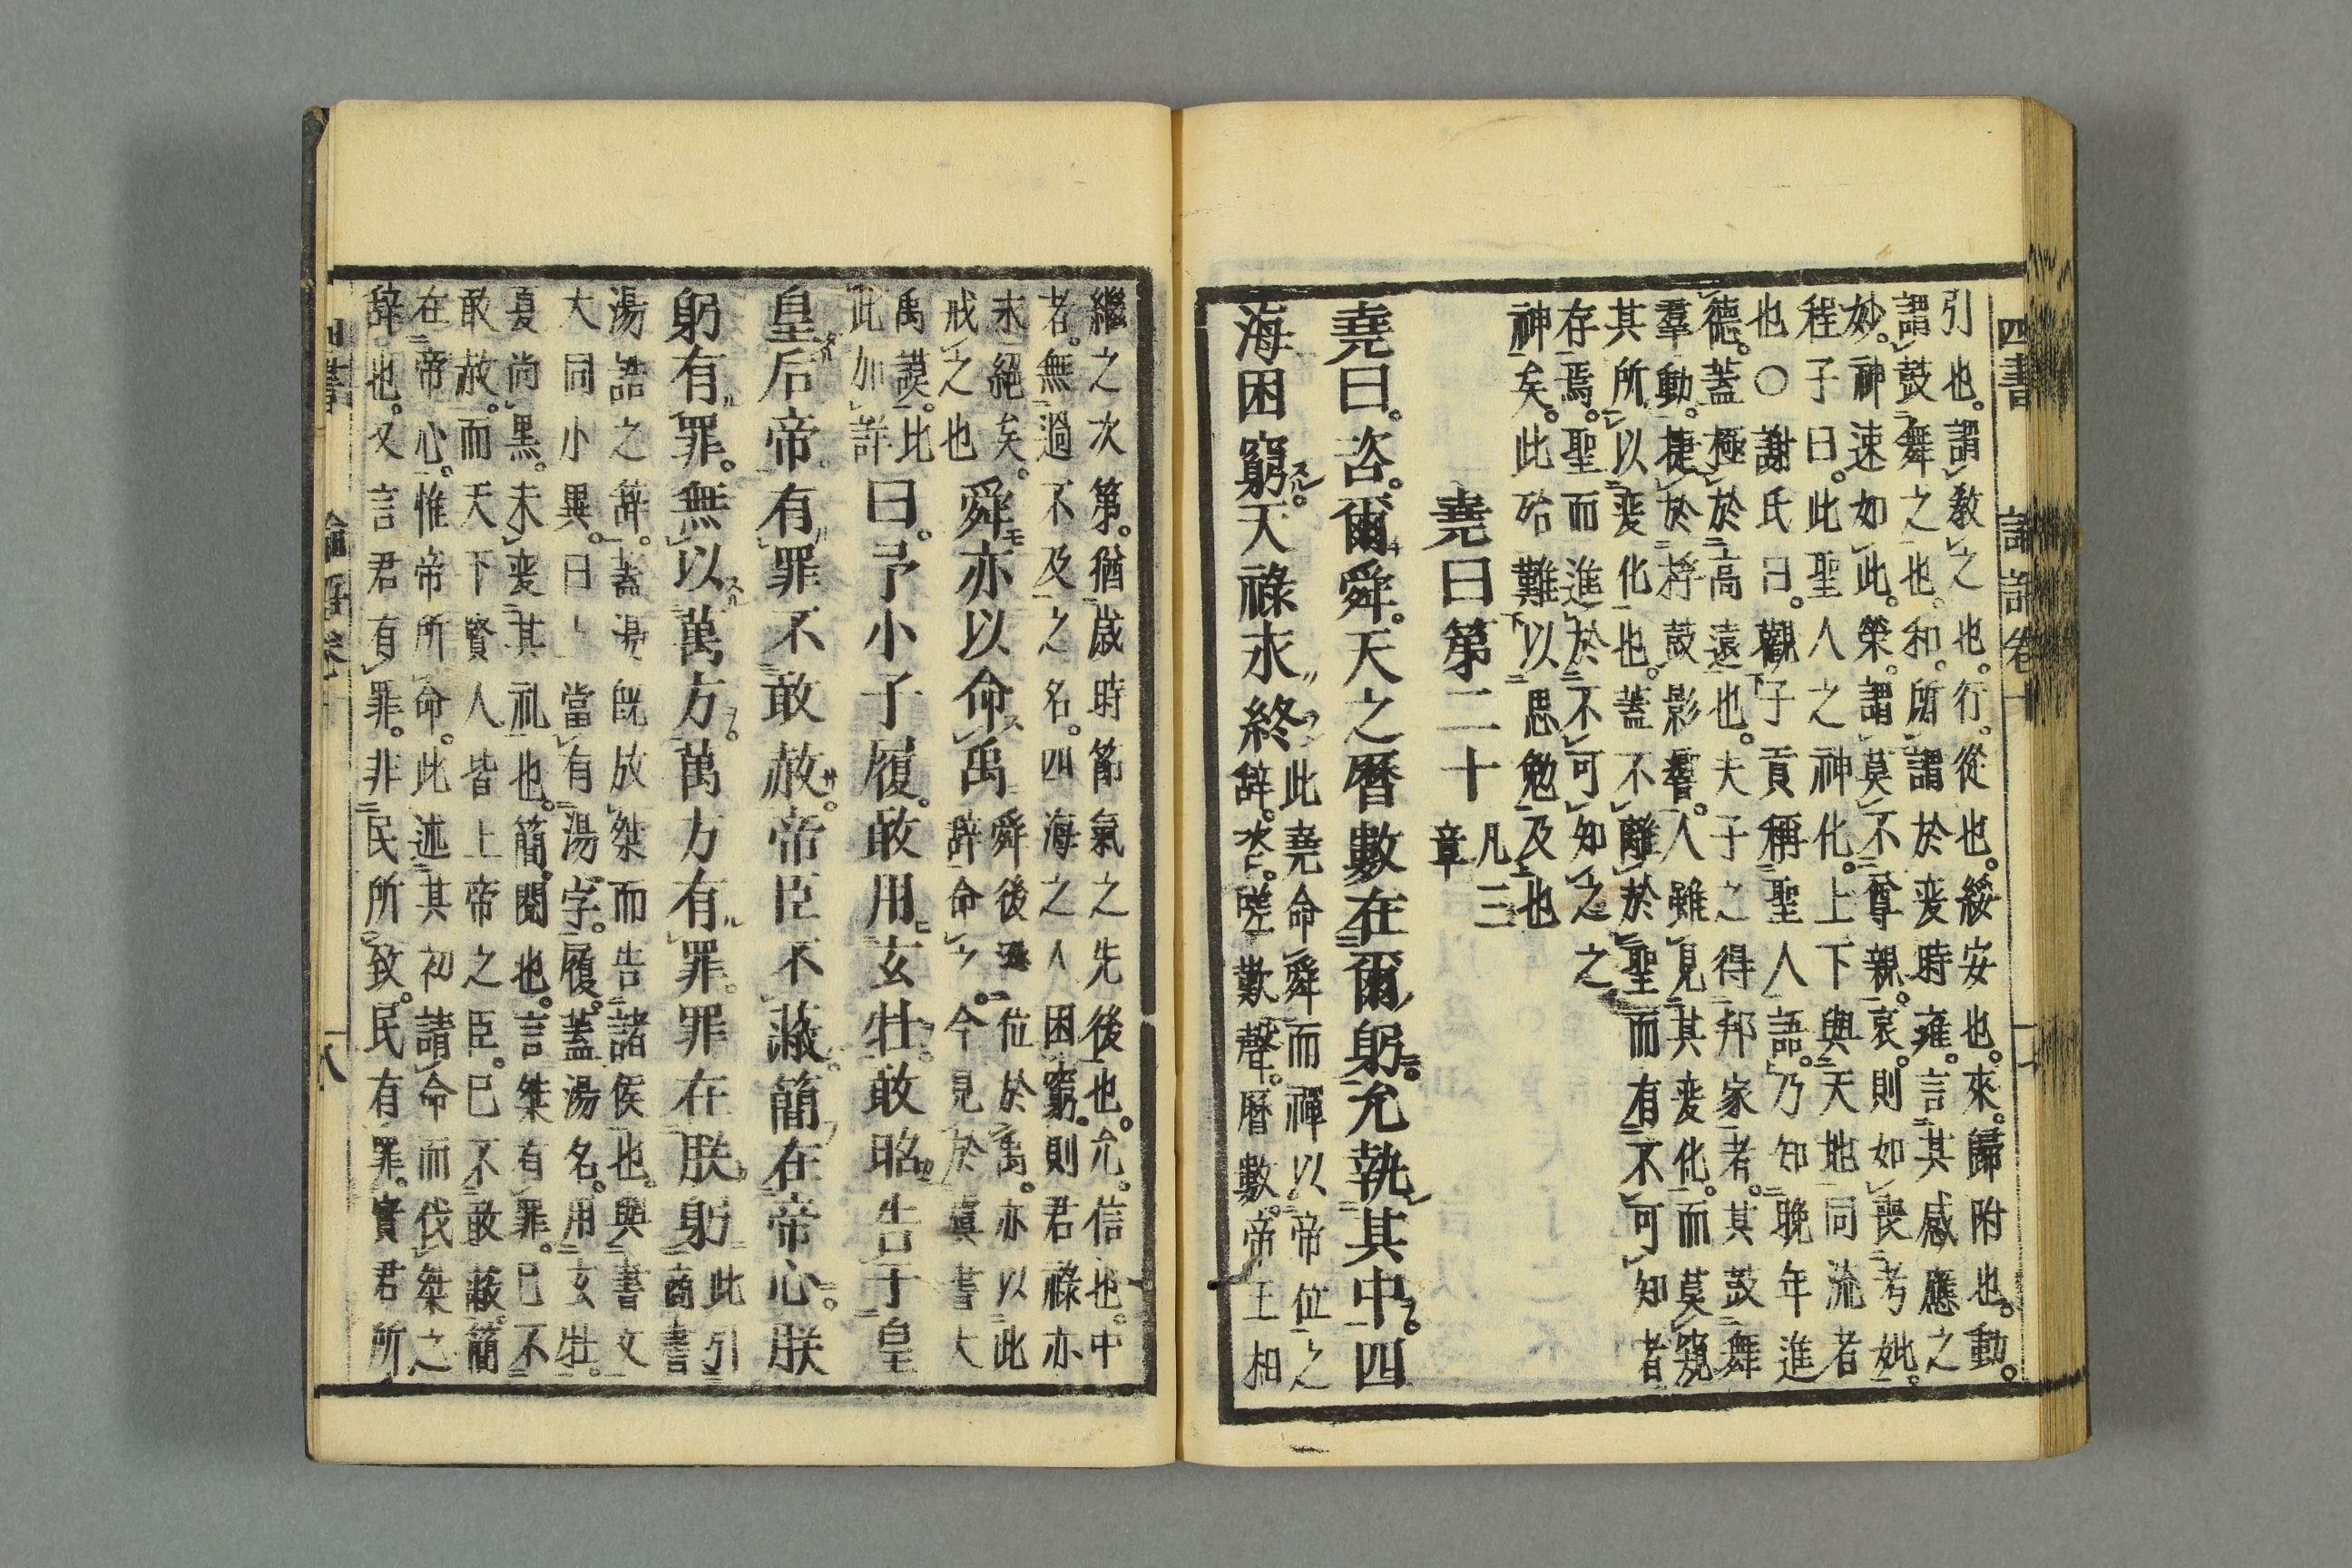 四書
引也。謂教之也。行。從也。綏安也。來。歸附也。動。
謂鼓舞之也。和。所謂於変時雍。言其感應之
妙。神速如此。榮。謂莫不尊親。哀。則如喪考妣。
程子曰。此聖人之神化。上下與天地同流者
也〇謝氏曰。觀子貢稱聖人語。乃知晚年進
德。蓋極於高遠也。夫子之得邦家者。其鼓舞
羣動。捷於桴鼓影響。人雖見其変化。而莫窺
其所以変化也。蓋不離於聖而有不可知者
存焉。聖而進於不可知之之
神矣。此殆難以思勉及也
堯曰第二十
凡三
章
堯曰。咨。爾舜。天之暦數在爾躬。允執其中。四
海困窮。天祿永終
此堯命舜而禪以帝位之
辞。咨。嗟歎聲。暦數。帝王相
繼之次第。猶歳時節氣之先後也。允。信也。中
者。無過不及之名。四海之人困窮。則君祿亦
永絕矣。
戒之也
舜亦以命禹
舜後遜位於禹。亦以此
辞命之。今見於虞書大
禹謨。比
此加詳
曰。予小子履。敢用玄牡。敢昭告于皇
皇后帝有罪不敢赦。帝臣不蔽。簡在帝心。朕
躬有罪。無以萬方。萬方有罪。罪在朕躬
此引
商書
湯誥之辞。蓋湯既放桀而告諸侯也。與書文
大同小異。曰上當有湯字。履。蓋湯名。用玄牡。
夏尚黒。未変其礼也。簡。閱也。言桀有罪。已不
敢赦。而天下賢人皆上帝之臣。已不敢蔽。簡
在帝心。惟帝所命。此述其初請命而伐桀之
辞也。又言君有罪。非民所致。民有罪。實君所